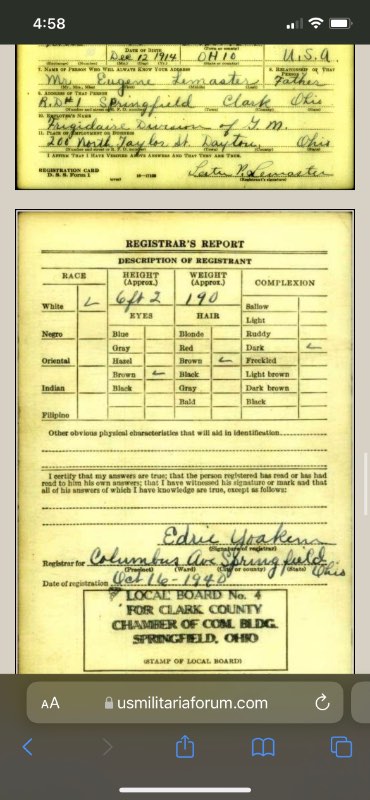 4:58
DATE OF BIRTH
Dec 12 1914 OHIO U.S.A.
7. NAME OF PERSON WHO WILL ALWAYS KNOW YOUR ADDRESS
8. RELATIONSHIP OF THAT PERSON
Mr. Eugene Lemaster Father
9. ADDRESS OF THAT PERSON
R.D#1 Springfield Clark Ohio
10. EMPLOYER'S NAME
Frigidaire Division of G.M.
11. PLACE OF EMPLOYMENT OR BUSINESS
200 North Taylor St. Dayton Ohio
I AFFIRM THAT I HAVE VERIFIED ABOVE ANSWERS AND THAT THEY ARE TRUE.
REGISTRATION CARD
D. S. S. Form 1
(Registrant's signature)
REGISTRAR'S REPORT
DESCRIPTION OF REGISTRANT
RACE HEIGHT (Approx.) WEIGHT (Approx.) COMPLEXION
White 6 ft 2 190 Sallow
Light
EYES HAIR
Negro Blue Blonde Ruddy
Gray Red Dark
Oriental Hazel Brown Freckled
Brown Black Light brown
Indian Black Gray Dark brown
Bald Black
Filipino
Other obvious physical characteristics that will aid in identification
I certify that my answers are true; that the person registered has read or has had
read to him his own answers; that I have witnessed his signature or mark and that
all of his answers of which I have knowledge are true, except as follows:
Edric Yoakem
(Signature of registrar)
Registrar for Columbus Ave Springfield Ohio
(Precinct) (Ward) (City or county) (State)
Date of registration Oct 16-1940
LOCAL BOARD No. 4
FOR CLARK COUNTY
CHAMBER OF COM. BLDG.
SPRINGFIELD, OHIO
(STAMP OF LOCAL BOARD)
AA usmilitariaforum.com